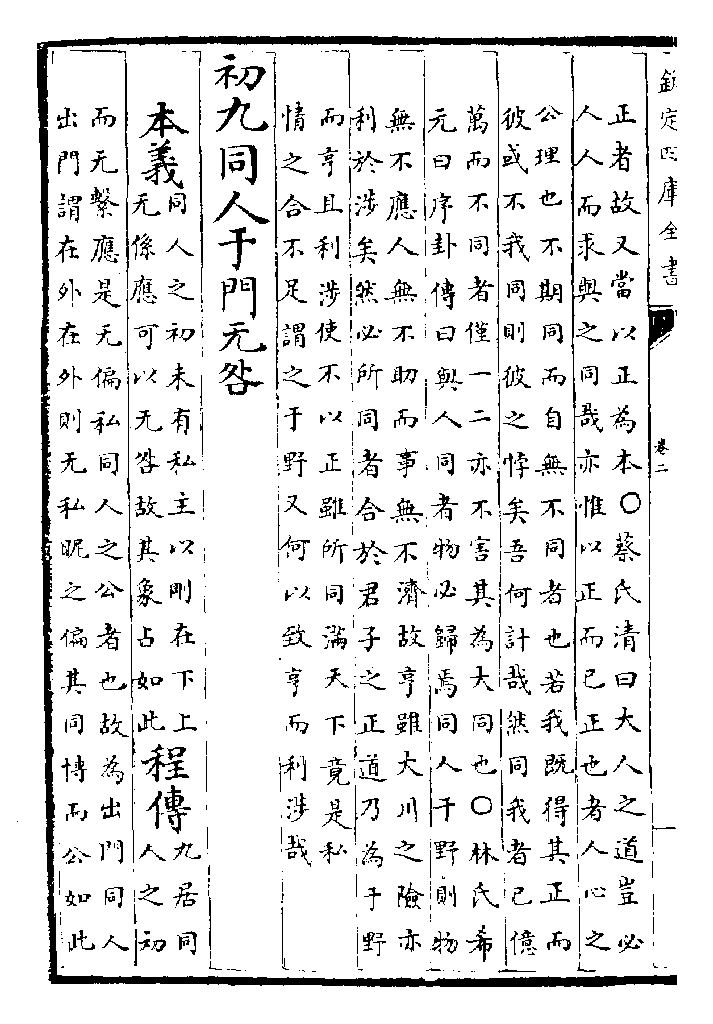 欽定四庫全書
卷二
正者故又當以正為本○蔡氏清曰大人之道豈必
人人而求與之同哉亦惟以正而已正也者人心之
公理也不期同而自無不同者也若我既得其正而
彼或不我同則彼之悖矣吾何計哉然同我者已億
萬而不同者僅一二亦不害其為大同也○林氏希
元曰序卦傳曰與人同者物必歸焉同人于野則物
無不應人無不助而事無不濟故亨雖大川之險亦
利於涉矣然必所同者合於君子之正道乃為于野
而亨且利涉使不以正雖所同滿天下竟是私
情之合不足謂之于野又何以致亨而利涉哉
初九同人于門无咎
本義
同人之初未有私主以剛在下上
无係應可以无咎故其象占如此
程傳
九居同
人之初
而无繫應是无偏私同人之公者也故為出門同人
出門謂在外在外則无私昵之偏其同博而公如此